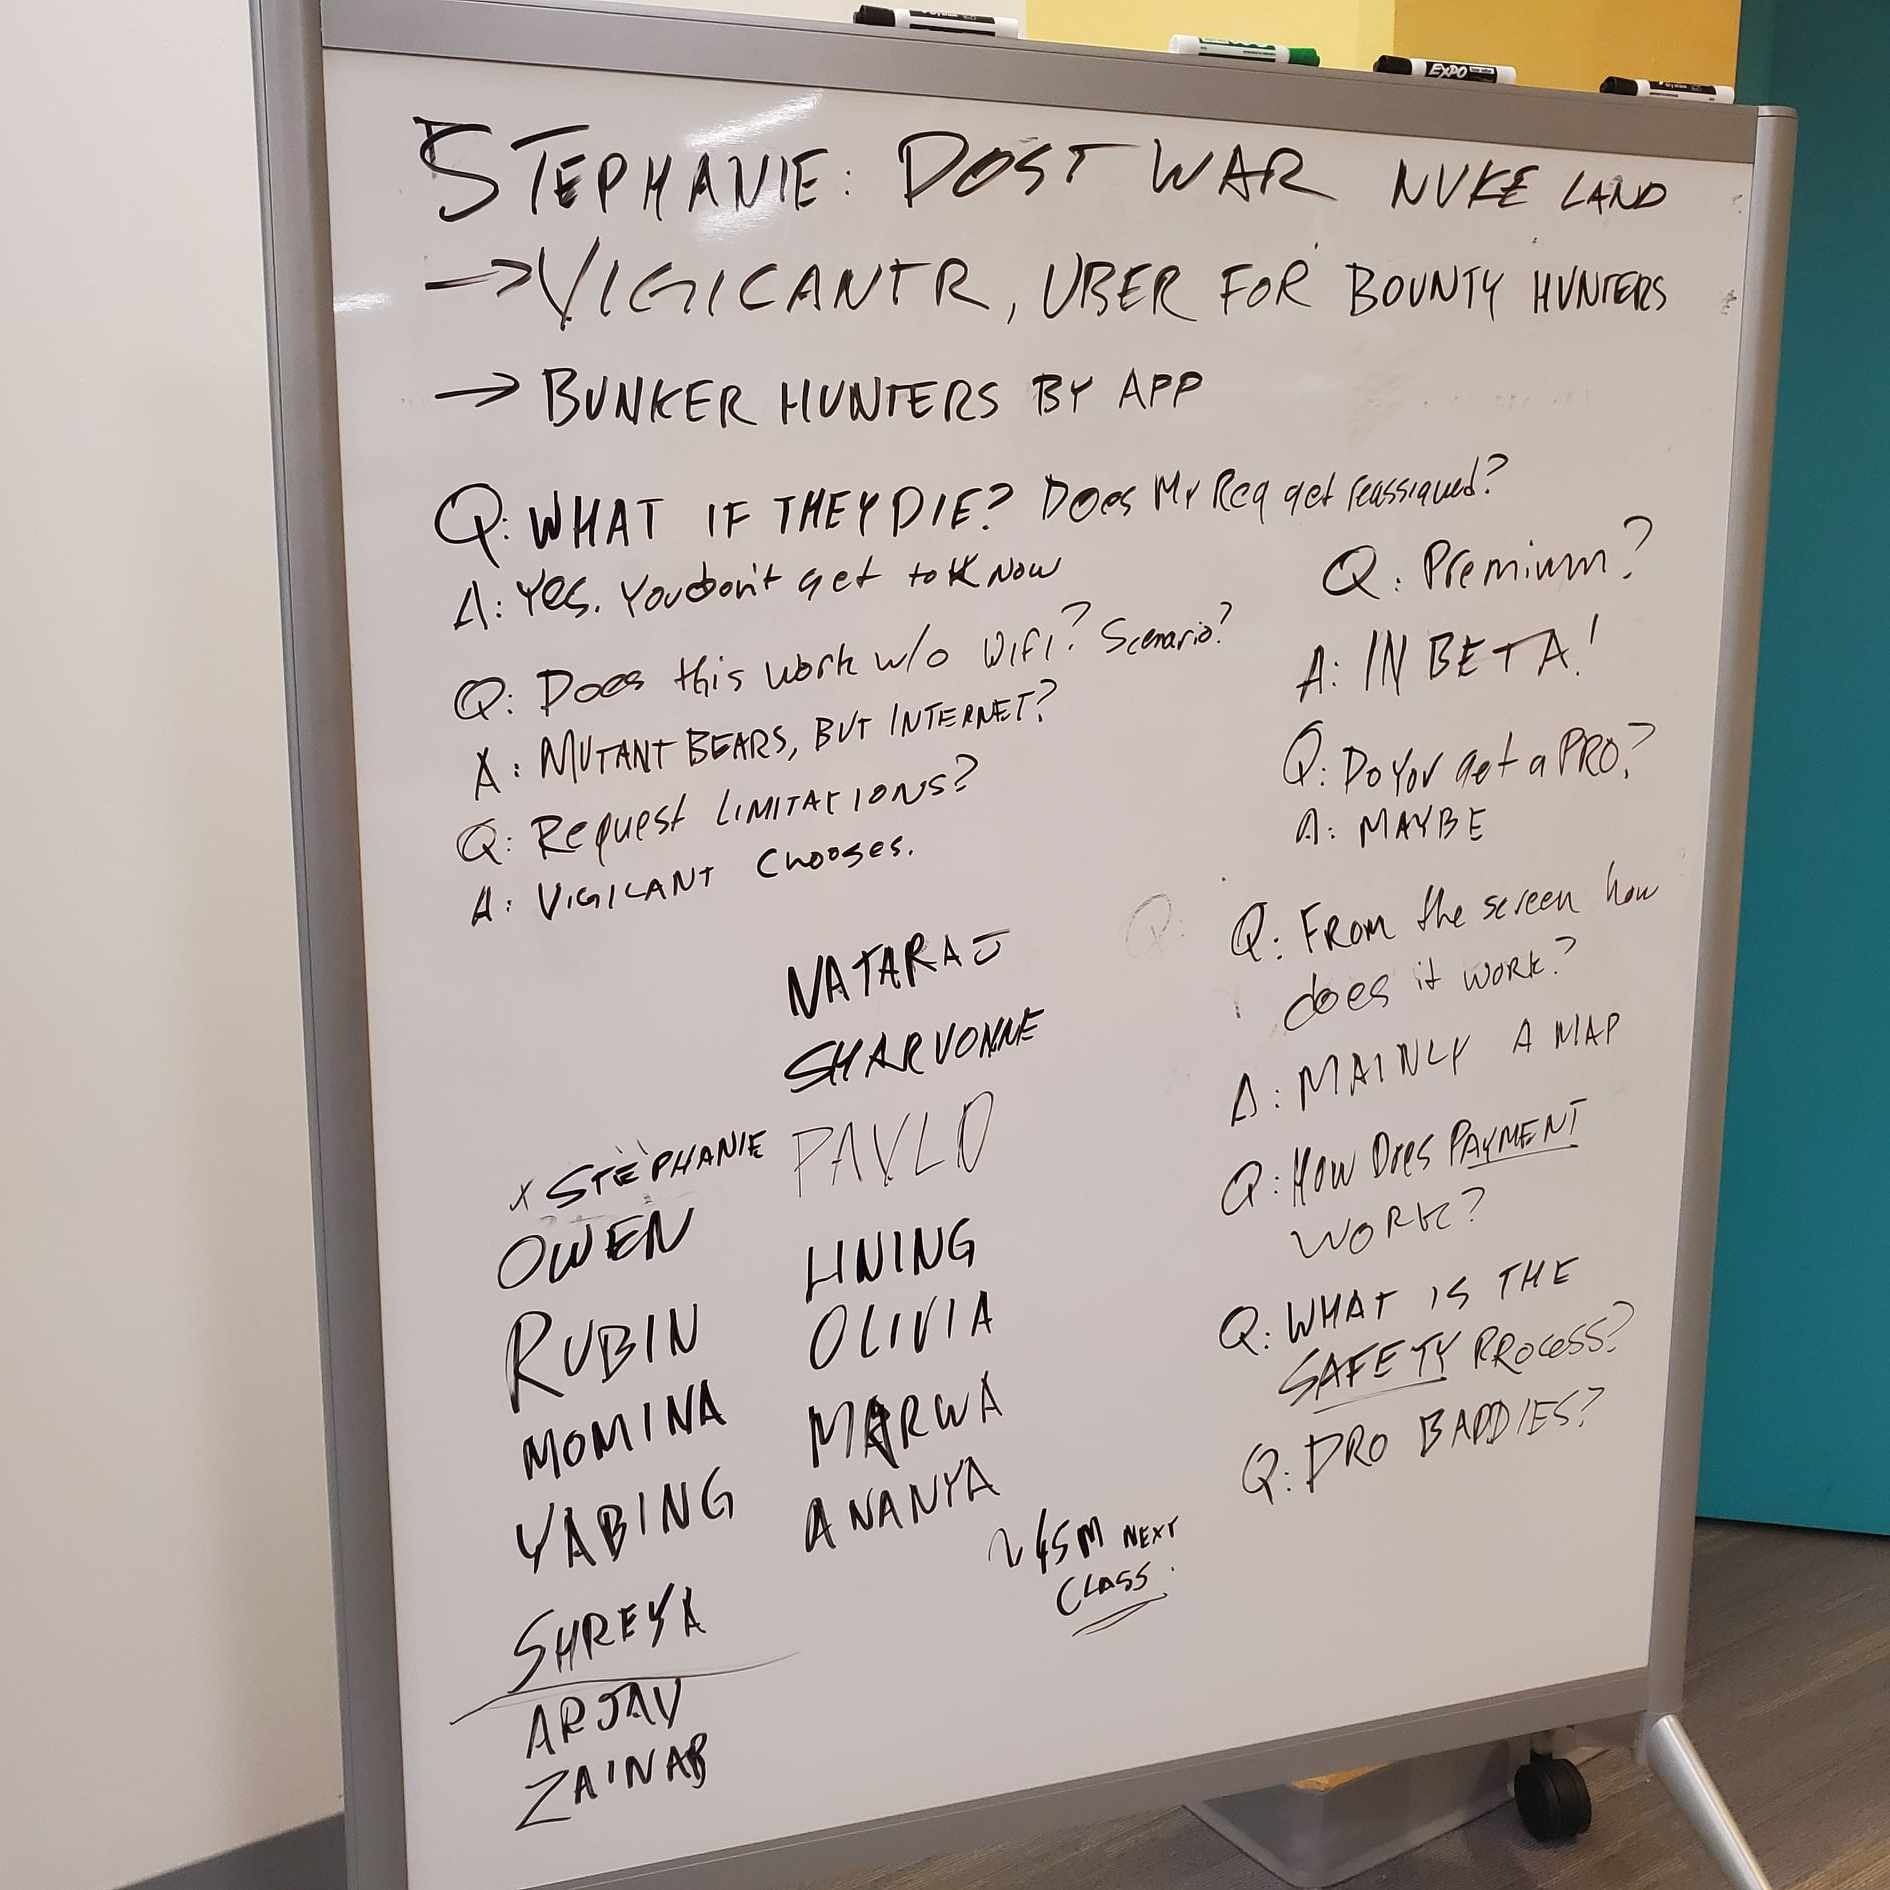 EXPO
STEPHANIE: POST WAR NUKE LAND
→ VIGILANTR, UBER FOR BOUNTY HUNTERS
→ BUNKER HUNTERS BY APP
Q: WHAT IF THEY DIE? Does My Req get reassigned?
A: Yes. You don't get to know
Q: Does this work w/o WIFI? Scenario?
A: MUTANT BEARS, BUT INTERNET?
Q: Request LIMITATIONS?
A: VIGILANT Chooses.
Q: Premium?
A: IN BETA!
Q: Do You get a PRO?
A: MAYBE
Q:
Q: FROM the screen how
does it work?
A: MAINLY A MAP
Q: How Does PAYMENT
WORK?
Q: WHAT IS THE
SAFETY PROCESS?
Q: PRO BADDIES?
NATARAJ
SHARVONNE
PAVLO
LINING
OLIVIA
MARWA
ANANYA
x STEPHANIE
OWEN
RUBIN
MOMINA
YABING
SHREYA
ARJAV
ZAINAB
~45M NEXT
CLASS.